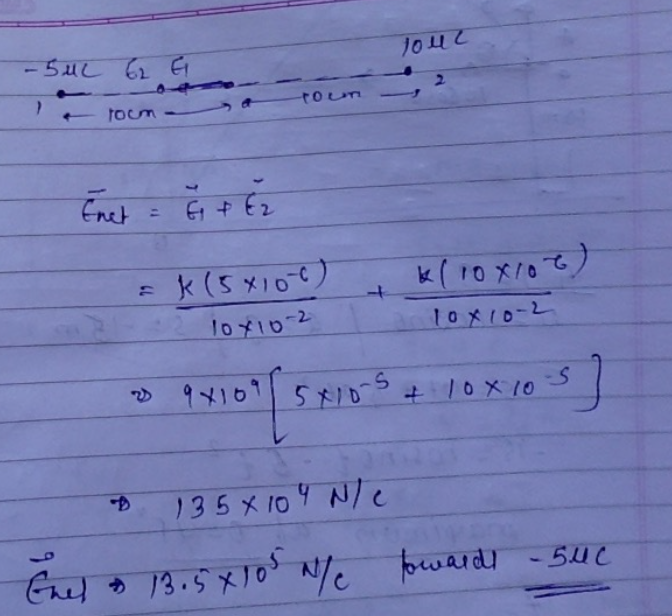 10μC
-5μC E2 E1
1 10cm 10cm 2
Enet = E1 + E2
= k(5×10-6) / 10×10-2 + k(10×10-6) / 10×10-2
⇒ 9×109 [5×10-5 + 10×10-5]
⇒ 135×104 N/C
Enet ⇒ 13.5×105 N/C towards -5μC